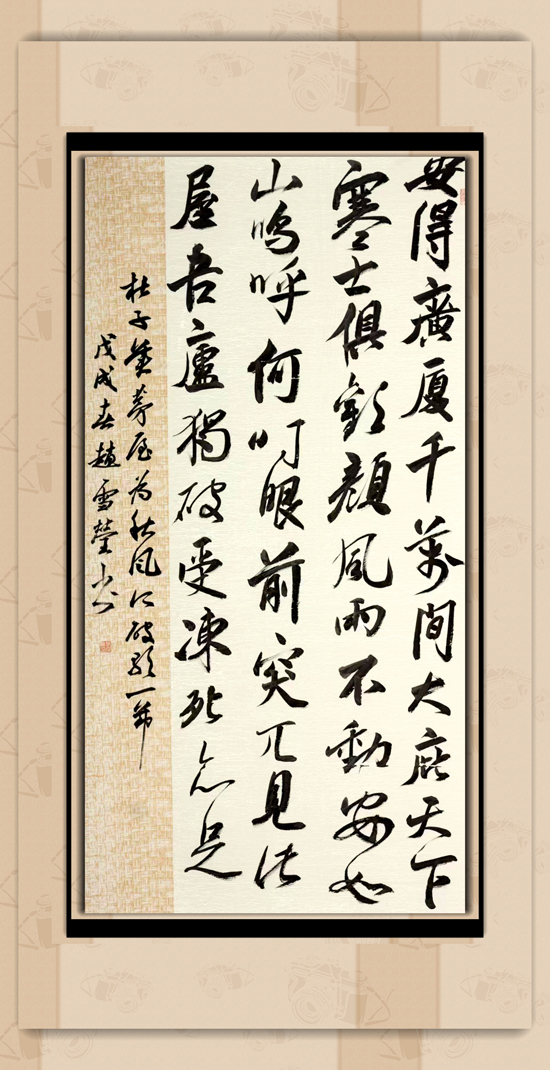 安得廣厦千萬間大庇天下
寒士俱歡顏風雨不動安如
山嗚呼何时眼前突兀見此
屋吾廬獨破受凍死亦足
杜子美茅屋為秋風所破歌一節
戊戌春趙雪瑩書